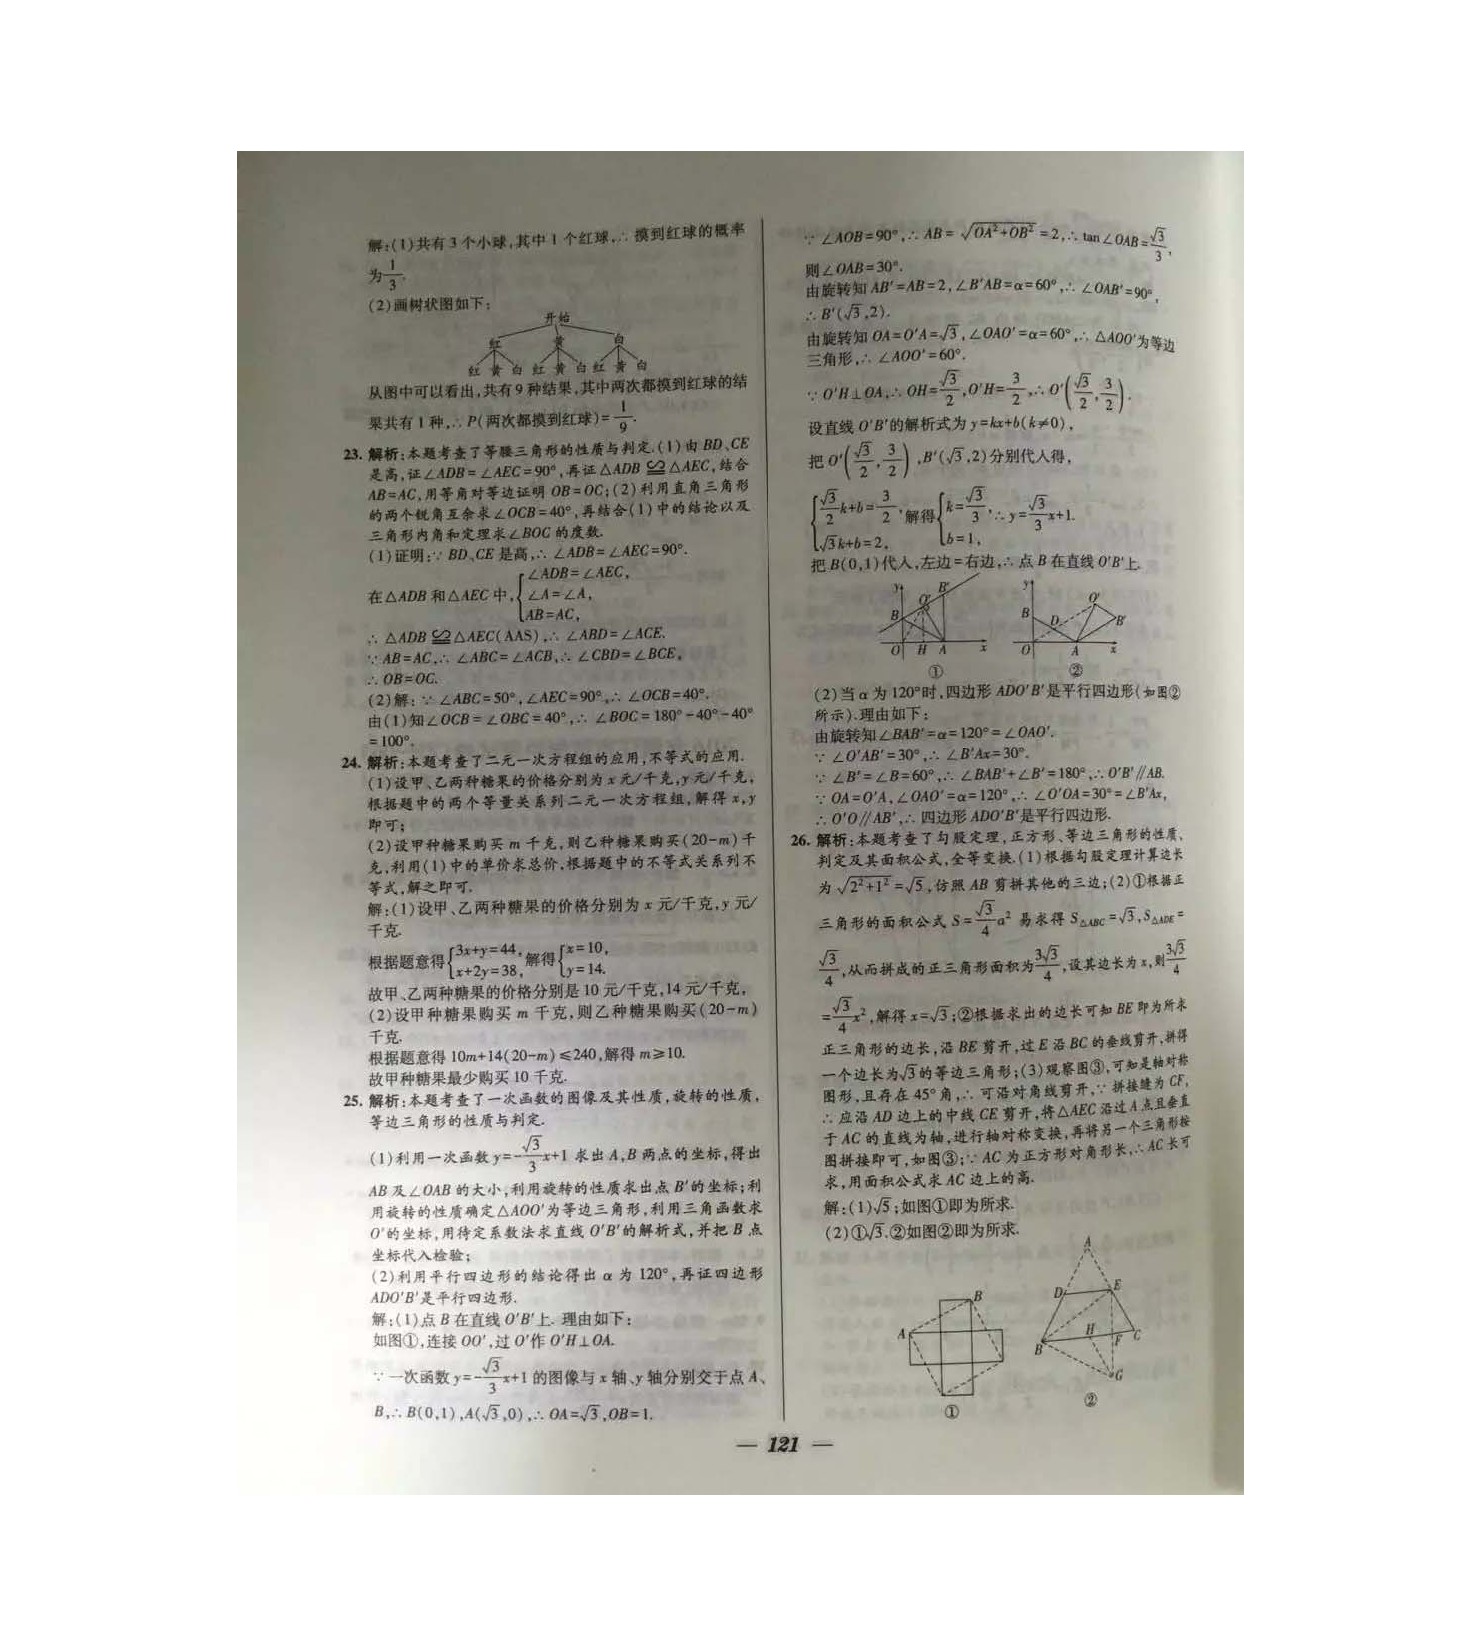 解:(1)共有3个小球,其中1个红球,∴摸到红球的概率
为1/3.
(2)画树状图如下:
开始
红 黄 白
红 黄 白 红 黄 白 红 黄 白
从图中可以看出,共有9种结果,其中两次都摸到红球的结
果共有1种,∴P(两次都摸到红球)=1/9.
23. 解析:本题考查了等腰三角形的性质与判定.(1)由BD、CE
是高,证∠ADB=∠AEC=90°,再证△ADB≌△AEC,结合
AB=AC,用等角对等边证明OB=OC;(2)利用直角三角形
的两个锐角互余求∠OCB=40°,再结合(1)中的结论以及
三角形内角和定理求∠BOC的度数.
(1)证明:∵BD、CE是高,∴∠ADB=∠AEC=90°.
在△ADB和△AEC中,{∠ADB=∠AEC,
∠A=∠A,
AB=AC,
∴△ADB≌△AEC(AAS),∴∠ABD=∠ACE.
∵AB=AC,∴∠ABC=∠ACB,∴∠CBD=∠BCE,
∴OB=OC.
(2)解:∵∠ABC=50°,∠AEC=90°,∴∠OCB=40°.
由(1)知∠OCB=∠OBC=40°,∴∠BOC=180°-40°-40°
=100°.
24. 解析:本题考查了二元一次方程组的应用,不等式的应用.
(1)设甲、乙两种糖果的价格分别为x元/千克,y元/千克,
根据题中的两个等量关系列二元一次方程组,解得x,y
即可;
(2)设甲种糖果购买m千克,则乙种糖果购买(20-m)千
克,利用(1)中的单价求总价,根据题中的不等式关系列不
等式,解之即可.
解:(1)设甲、乙两种糖果的价格分别为x元/千克,y元/
千克.
根据题意得{3x+y=44, x+2y=38, 解得{x=10, y=14.
故甲、乙两种糖果的价格分别是10元/千克,14元/千克,
(2)设甲种糖果购买m千克,则乙种糖果购买(20-m)
千克.
根据题意得10m+14(20-m)≤240,解得m≥10.
故甲种糖果最少购买10千克.
25. 解析:本题考查了一次函数的图像及其性质,旋转的性质,
等边三角形的性质与判定.
(1)利用一次函数y=-√3/3x+1求出A,B两点的坐标,得出
AB及∠OAB的大小,利用旋转的性质求出点B′的坐标;利
用旋转的性质确定△AOO′为等边三角形,利用三角函数求
O′的坐标,用待定系数法求直线O′B′的解析式,并把B点
坐标代入检验;
(2)利用平行四边形的结论得出α为120°,再证四边形
ADO′B′是平行四边形.
解:(1)点B在直线O′B′上.理由如下:
如图①,连接OO′,过O′作O′H⊥OA.
∵一次函数y=-√3/3x+1的图像与x轴、y轴分别交于点A、
B,∴B(0,1),A(√3,0),∴OA=√3,OB=1.
∵∠AOB=90°,∴AB=√(OA²+OB²)=2,∴tan∠OAB=√3/3,
则∠OAB=30°.
由旋转知AB′=AB=2,∠B′AB=α=60°,∴∠OAB′=90°,
∴B′(√3,2).
由旋转知OA=O′A=√3,∠OAO′=α=60°,∴△AOO′为等边
三角形,∴∠AOO′=60°.
∵O′H⊥OA,∴OH=√3/2,O′H=3/2,∴O′(√3/2,3/2).
设直线O′B′的解析式为y=kx+b(k≠0),
把O′(√3/2,3/2),B′(√3,2)分别代入得,
{√3/2k+b=3/2, √3k+b=2, 解得{k=√3/3, b=1, ∴y=√3/3x+1.
把B(0,1)代入,左边=右边,∴点B在直线O′B′上.
y B′ O′ B O H A x
①
y O′ B D B′ O A x
②
(2)当α为120°时,四边形ADO′B′是平行四边形(如图②
所示).理由如下:
由旋转知∠BAB′=α=120°=∠OAO′.
∵∠O′AB′=30°,∴∠B′Ax=30°.
∵∠B′=∠B=60°,∴∠BAB′+∠B′=180°,∴O′B′∥AB.
∵OA=O′A,∠OAO′=α=120°,∴∠O′OA=30°=∠B′Ax,
∴O′O∥AB′,∴四边形ADO′B′是平行四边形.
26. 解析:本题考查了勾股定理,正方形、等边三角形的性质、
判定及其面积公式,全等变换.(1)根据勾股定理计算边长
为√(2²+1²)=√5,仿照AB剪拼其他的三边;(2)①根据正
三角形的面积公式S=√3/4a²易求得S△ABC=√3,S△ADE=
√3/4,从而拼成的正三角形面积为3√3/4,设其边长为x,则3√3/4
=√3/4x²,解得x=√3;②根据求出的边长可知BE即为所求
正三角形的边长,沿BE剪开,过E沿BC的垂线剪开,拼得
一个边长为√3的等边三角形;(3)观察图③,可知是轴对称
图形,且存在45°角,∴可沿对角线剪开,∵拼接缝为CF,
∴应沿AD边上的中线CE剪开,将△AEC沿过A点且垂直
于AC的直线为轴,进行轴对称变换,再将另一个三角形按
图拼接即可,如图③;∵AC为正方形对角形长,∴AC长可
求,用面积公式求AC边上的高.
解:(1)√5;如图①即为所求.
(2)①√3.②如图②即为所求.
B A
①
A D E H F C B G
②
— 121 —